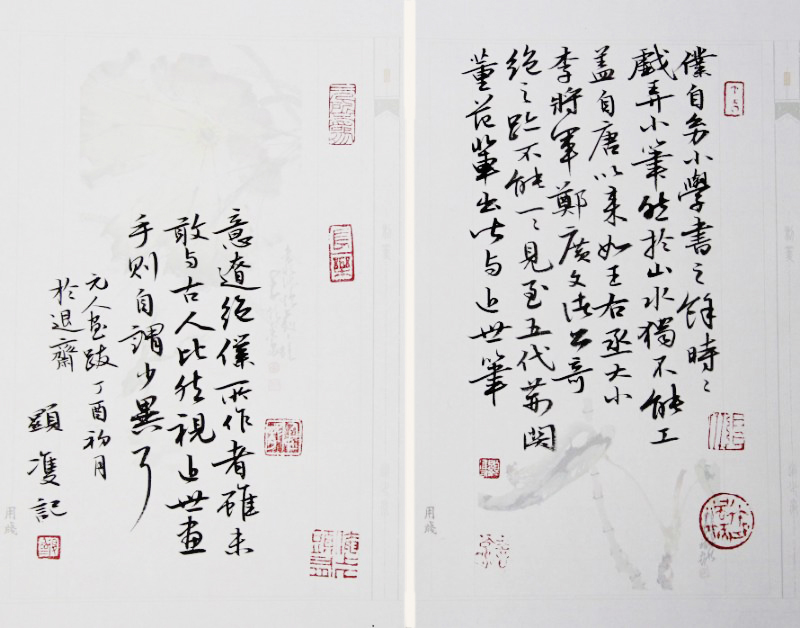 僕自幼小學書之餘時〻
戲弄小筆然於山水獨不能工
蓋自唐以來如王右丞大小
李將軍鄭廣文諸公奇
絕之跡不能一〻見至五代荊関
董范輩出皆与近世筆
意遼絕僕所作者雖未
敢与古人比然視近世畫
手則自謂少異耳
元人畫跋丁酉初月
於退齋
顯 記
用牋
用牋